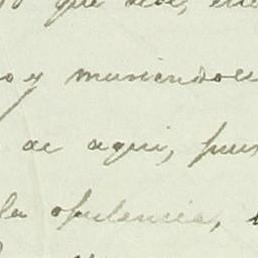 que
o y muriendose
de aqui, pues
la opulencia,